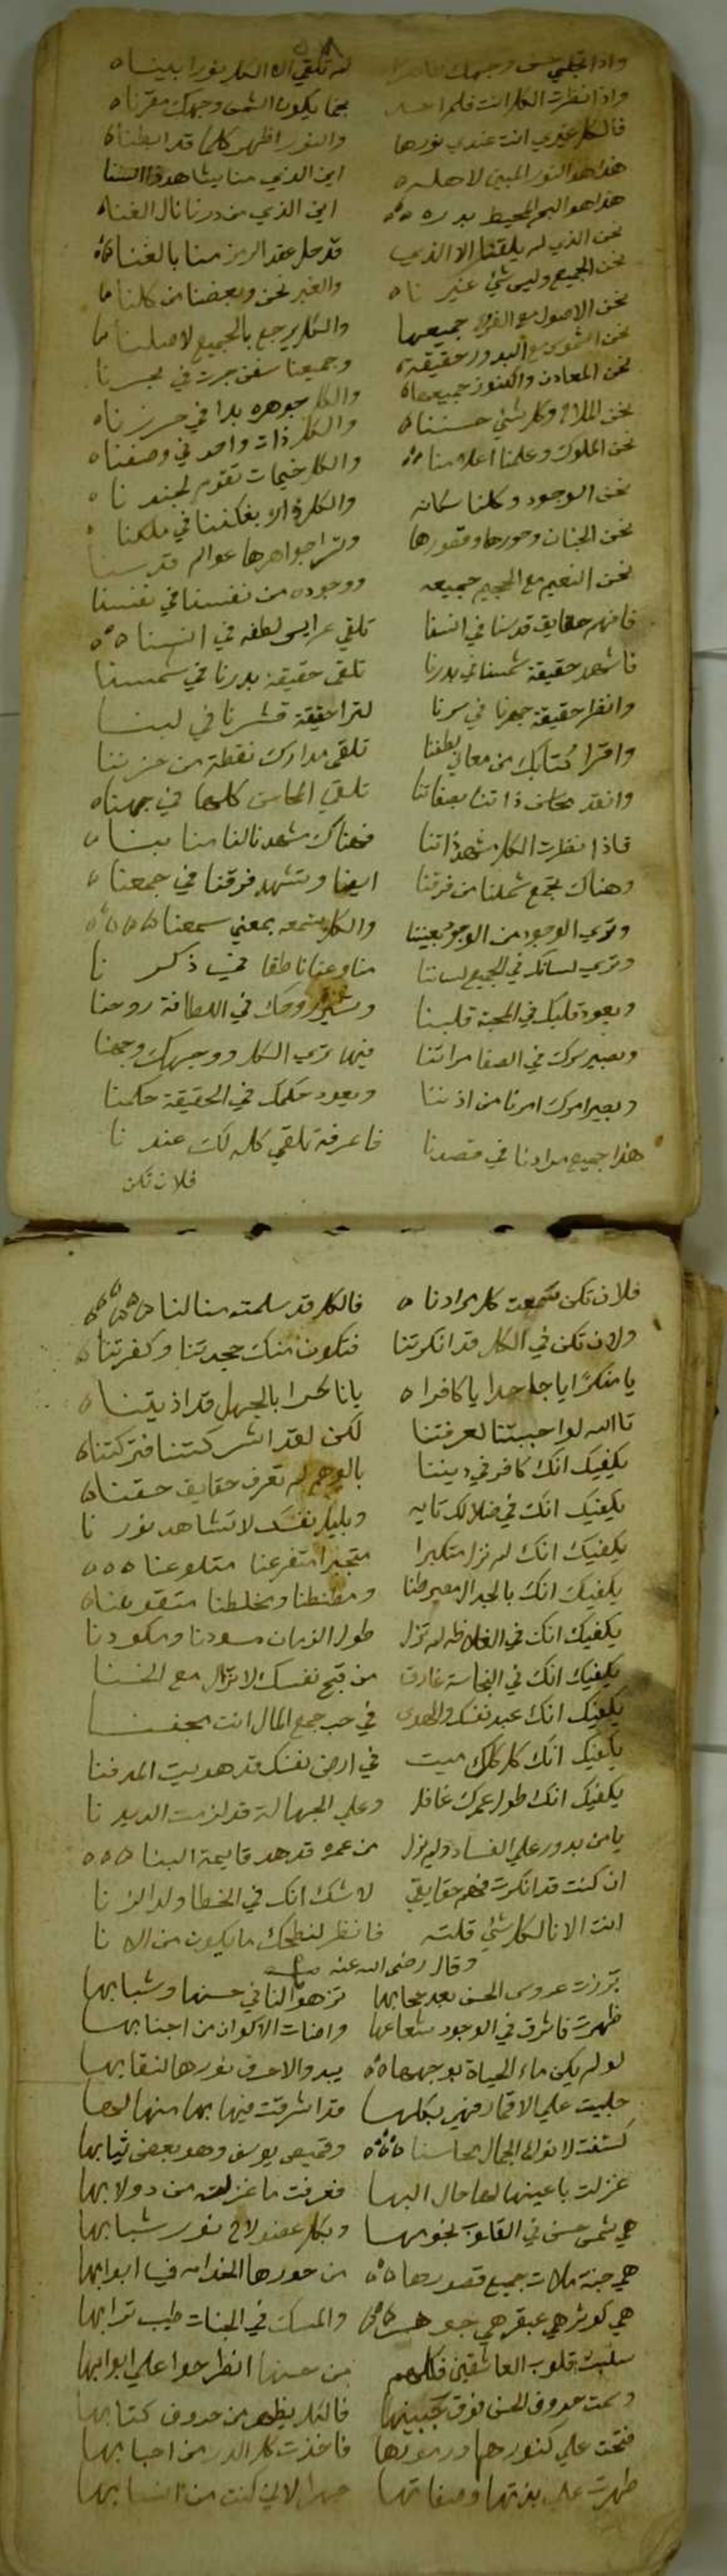 واذا تجلي حسن وجهك لم تلقي الا الكل نورا بيناه
واذا نظرت الكل انت فلم احد يكون الشمس وجهك مقرناه
فالكل غيري انت عندي نورها والنور اظهر كلما قد ابطناه
هذا هو النور المبين لاهله اين الذي منا يشاهد السنا
هذا هو البحر المحيط بدره اين الذي من درنا نال الغناه
نحن الذي لم يلقنا الا الذي قد حل عقد الرمز منا بالغناه
نحن الجميع وليس شئ غيرنا والغير نحن وبعضنا من كلنا
نحن الاصول مع الفروع جميعها والكل يرجع بالجميع لاصلنا
نحن الشموس مع البدور حقيقة وجميعنا سفن جرت في بحرنا
نحن المعادن والكنوز جميعها والكل جوهره بدا في حرزناه
نحن الملاح وكل شئ حسنناه والكل ذات واحد في وصفناه
نحن الملوك وعلمنا اعلامنا والكل خيمات تقوم لجندنا
نحن الوجود وكلنا سكانه والكل في ملكنا
نحن الجنان وحورها وقصورها وترا جواهرها عوالم قدسنا
نحن النعيم مع الجحيم جميعه ووجوده من نفسنا في نفسنا
فافهم حقايق قدسنا في انسنا تلقي عرايس لطفه في انسنا
فاشهد حقيقة شمسنا في بدرنا تلقى حقيقة بدرنا في شمسنا
وانظر حقيقة جهرنا في سرنا لترا حقيقة قشرنا في لبنا
واقرا كتابك من معاني لطفنا تلقى مدارك نقطة من حزبنا
وانقد محاسن ذاتنا بصفاتنا تلقي المحاسن كلها في جهناه
فاذا نظرت الكل مشهد ذاتنا فهناك مشهدنا لنا منا بنا
وهناك تجمع شملنا من فرقنا ايضا وتشهد فرقنا في جمعنا
وتري الوجود من الوجود بعيننا والكل تسمعه بمعني سمعنا
وتري لسانك في الجميع لساننا منا وعنا ناطقا في ذكرنا
ويعود قلبك في المحبة قلبنا وتصير روحك في اللطافة روحنا
ويصير سرك في الصفا مراتنا فيها تري الكل ووجهك وجهنا
ويصير امرك امرنا من اذننا ويعود حكمك في الحقيقة حكمنا
هذا جميع مرادنا في قصدنا فاعرفه تلقي كله لك عندنا
فلان تكن
فلان تكن سمعت كل مرادناه فالكل قد سلمته منا لنا
ولان تكن في الكل قد انكرتنا فتكون منك جحدتنا وكفرتنا
يا منكرا يا جاحدا يا كافراه يا ناكرا بالجهل قد اذيتناه
تالله لو احببتنا لعرفتنا لكن لقد اشركتنا فتركتناه
يكفيك انك كافر في ديننا بالوهم لم تعرف حقايق حقناه
يكفيك انك في ضلالك تايه وبليل نفسك لا تشاهد نورنا
يكفيك انك لم تزل متكبرا متجبرا متفرعنا متلوعنا
يكفيك انك بالجدال ومطنطنا ومخلطنا
يكفيك انك في لم تزل طول الزمان
يكفيك انك في النجاسة غارق من قبح نفسك لا تزال مع الخنا
يكفيك انك عبد نفسك والهوى في حب جمع المال انت
يكفيك انك كل كلك ميت في ارض نفسك قد هويت المدفنا
يكفيك انك طول عمرك غافل وعلي الجهالة قد لزمت الديدنا
يا من يدور علي الفساد ولم يزل من عمره قد هد قايمة البنا
ان كنت قد انكرت فهم حقايقي لا شك انك في الخطا ولد الزنا
انت الانا لكل شئ قلته فانظر لنطحك ما يكون من الانا
وقال رضى الله عنه
برزت عروس الحسن بعد حجابها تزهو لنا في حسنها وشبابها
ظهرت فاشرق في الوجود شعاعها واضات الاكوان من اجنابها
لو لم يكن ماء الحياة بوجهها يبدو لاحرق نورها لنقابها
جليت علي الاقمار فهي بكلها قد اشرقت فيها بها منها لها
كشفت لانواع الجمال محاسنا وقميص يوسف وهو بعض ثيابها
غزلت باعينها لها حال البها فعرفت ما غزلته من دولابها
هي شمس حسن في القلوب نجومها وبكل عضو لاح نور شبابها
هي جنة ملات جميع قصورها من حورها الخدام في ابوابها
هي كوثر هي عبقر هي جوهر والمسك في الجنات طيب ترابها
سلبت قلوب العاشقين فكلهم من حسنها انطرحوا علي ابوابها
رسمت حروف الحسن فوق جبينها فالكل يظهر من حروف كتابها
فتحت علي كنوزها ورموزها فاخذت كل الدر من احبابها
ظهرت علي بذاتها وصفاتها جهرا لاني كنت من انسابها